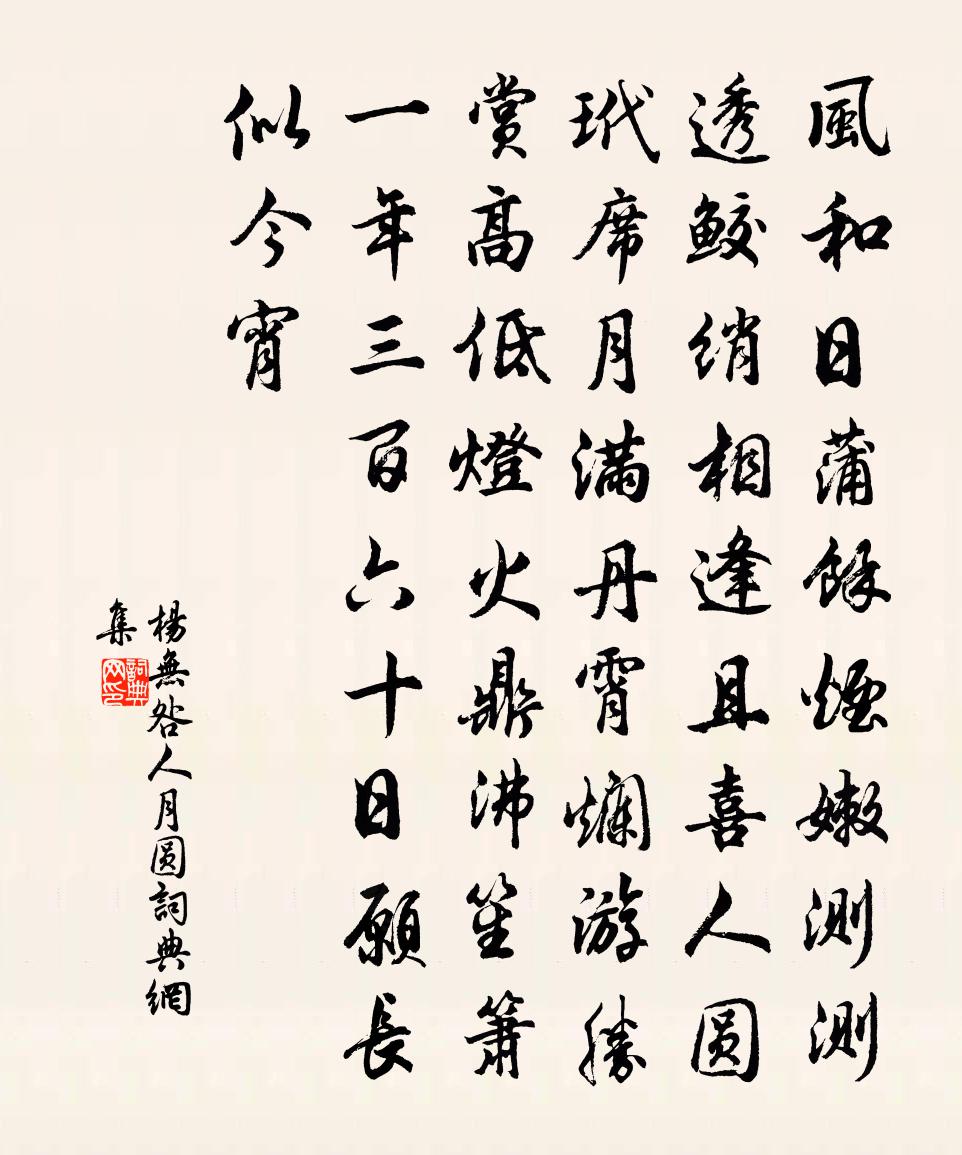 風和日蒲餘煙嫩測測
透鮫綃相逢且喜人圆
玳席月滿丹霄爛游勝
賞高低燈火鼎沸笙簫
一年三百六十日願長
似今宵
楊無咎人月圆詞典網
集
詞典
网印